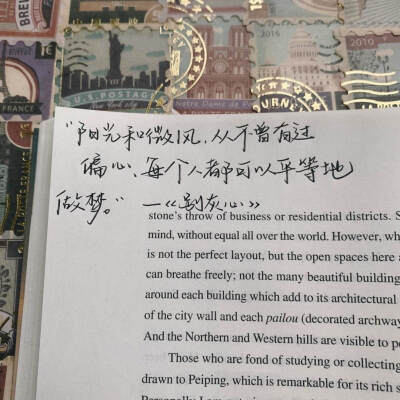 BREM
FRANCE
U.S. POSTAGE
New York city
Notre Dame de Paris
FRANCE
JOURNEY
2010
2016
“阳光和微风，从不曾有过
偏心、每个人都可以平等地
做梦。”—《别灰心》
stone's throw of business or residential districts. S
mind, without equal all over the world. However, wh
is not the perfect layout, but the open spaces here a
can breathe freely; not the many beautiful building
around each building which add to its architectural
of the city wall and each pailou (decorated archway
And the Northern and Western hills are visible to pe
Those who are fond of studying or collecting
drawn to Peiping, which is remarkable for its rich s